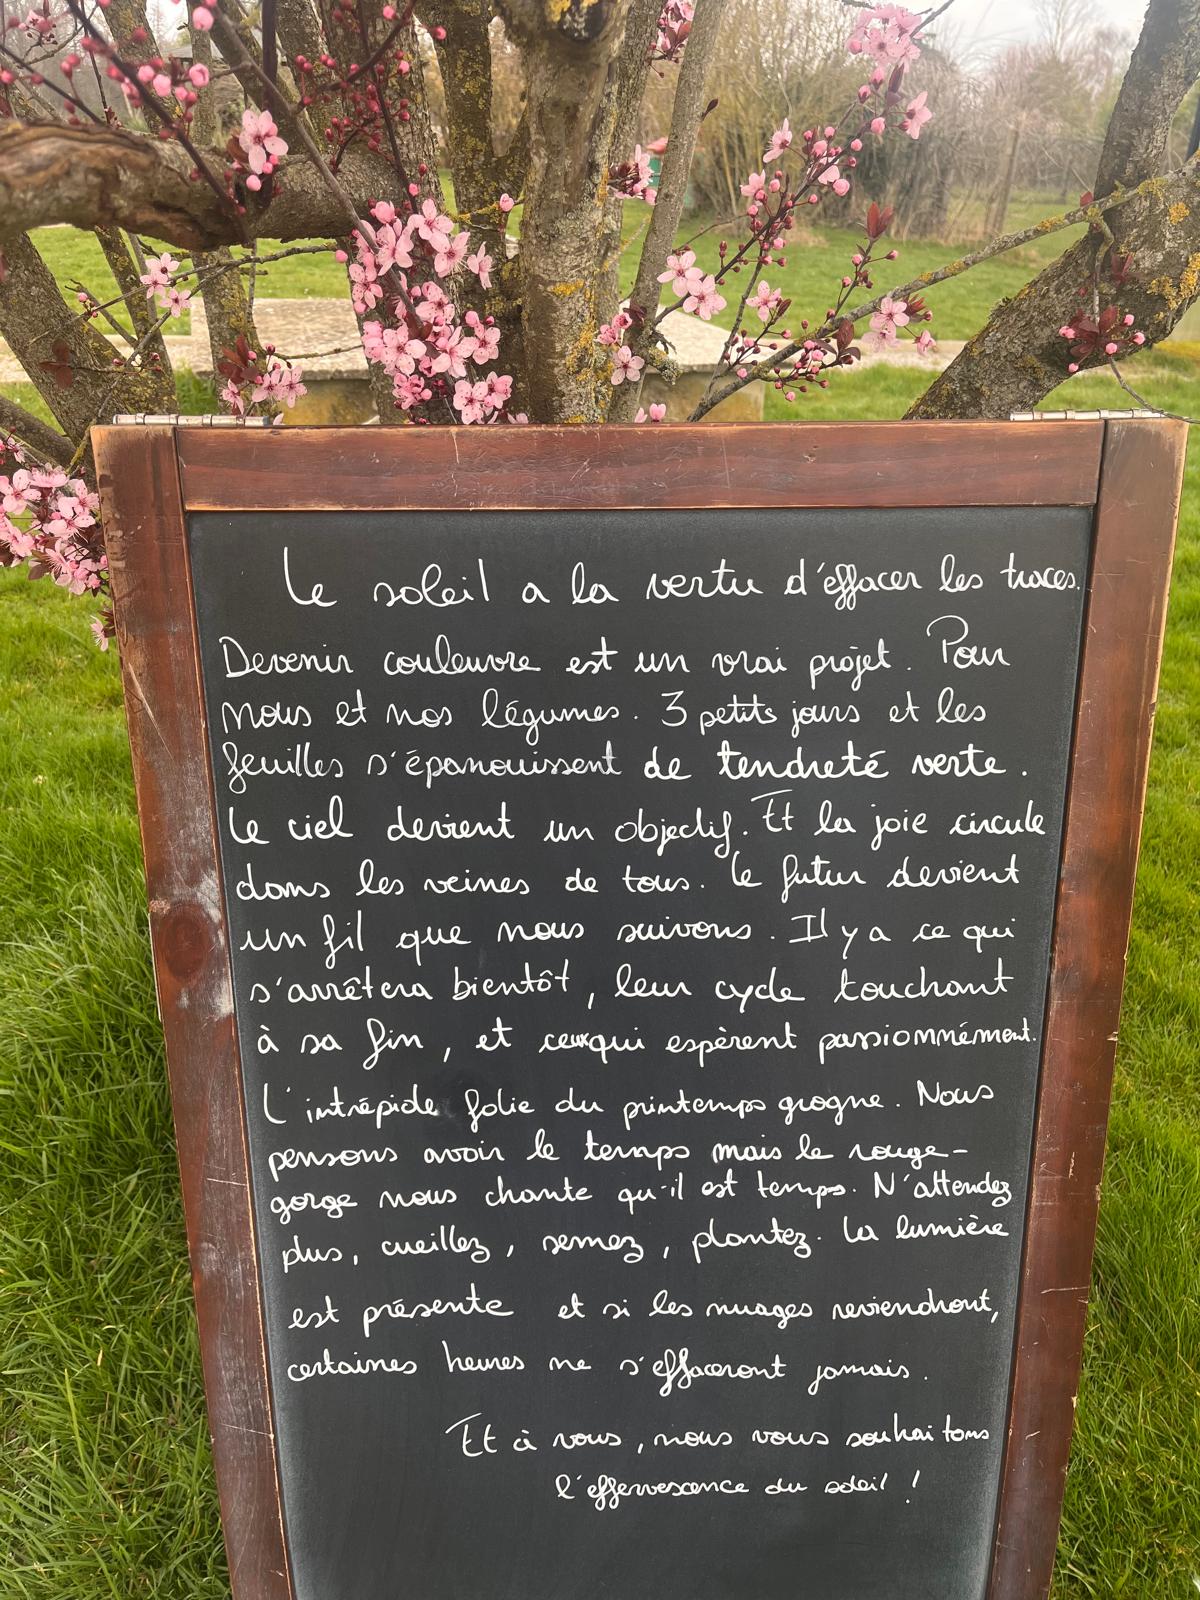 Le soleil a la vertu d'effacer les traces.
Devenir couleuvre est un vrai projet. Pour
nous et nos légumes. 3 petits jours et les
feuilles s'épanouissent de tendreté verte.
Le ciel devient un objectif. Et la joie circule
dans les veines de tous. Le futur devient
un fil que nous suivons. Il y a ce qui
s'arrêtera bientôt, leur cycle touchant
à sa fin, et ceux qui espèrent passionnément.
L'intrépide folie du printemps grogne. Nous
pensons avoir le temps mais le rouge-
gorge nous chante qu'il est temps. N'attendez
plus, cueillez, semez, plantez. La lumière
est présente et si les nuages reviendront,
certaines heures ne s'effaceront jamais.
Et à vous, nous vous souhaitons
l'effervescence du soleil !